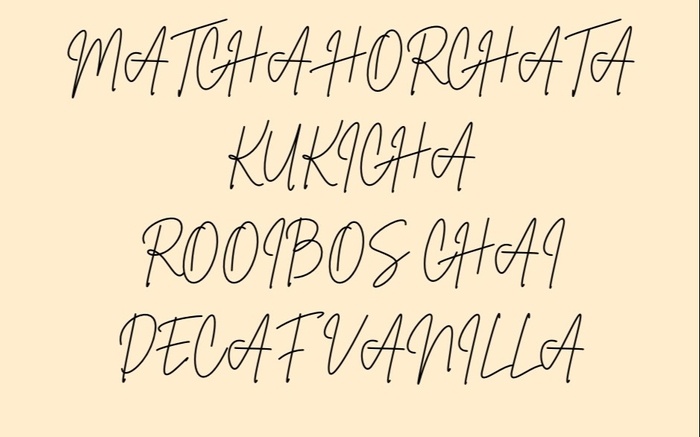 MATCHA HORCHATA
KUKICHA
ROOIBOS CHAI
DECAF VANILLA